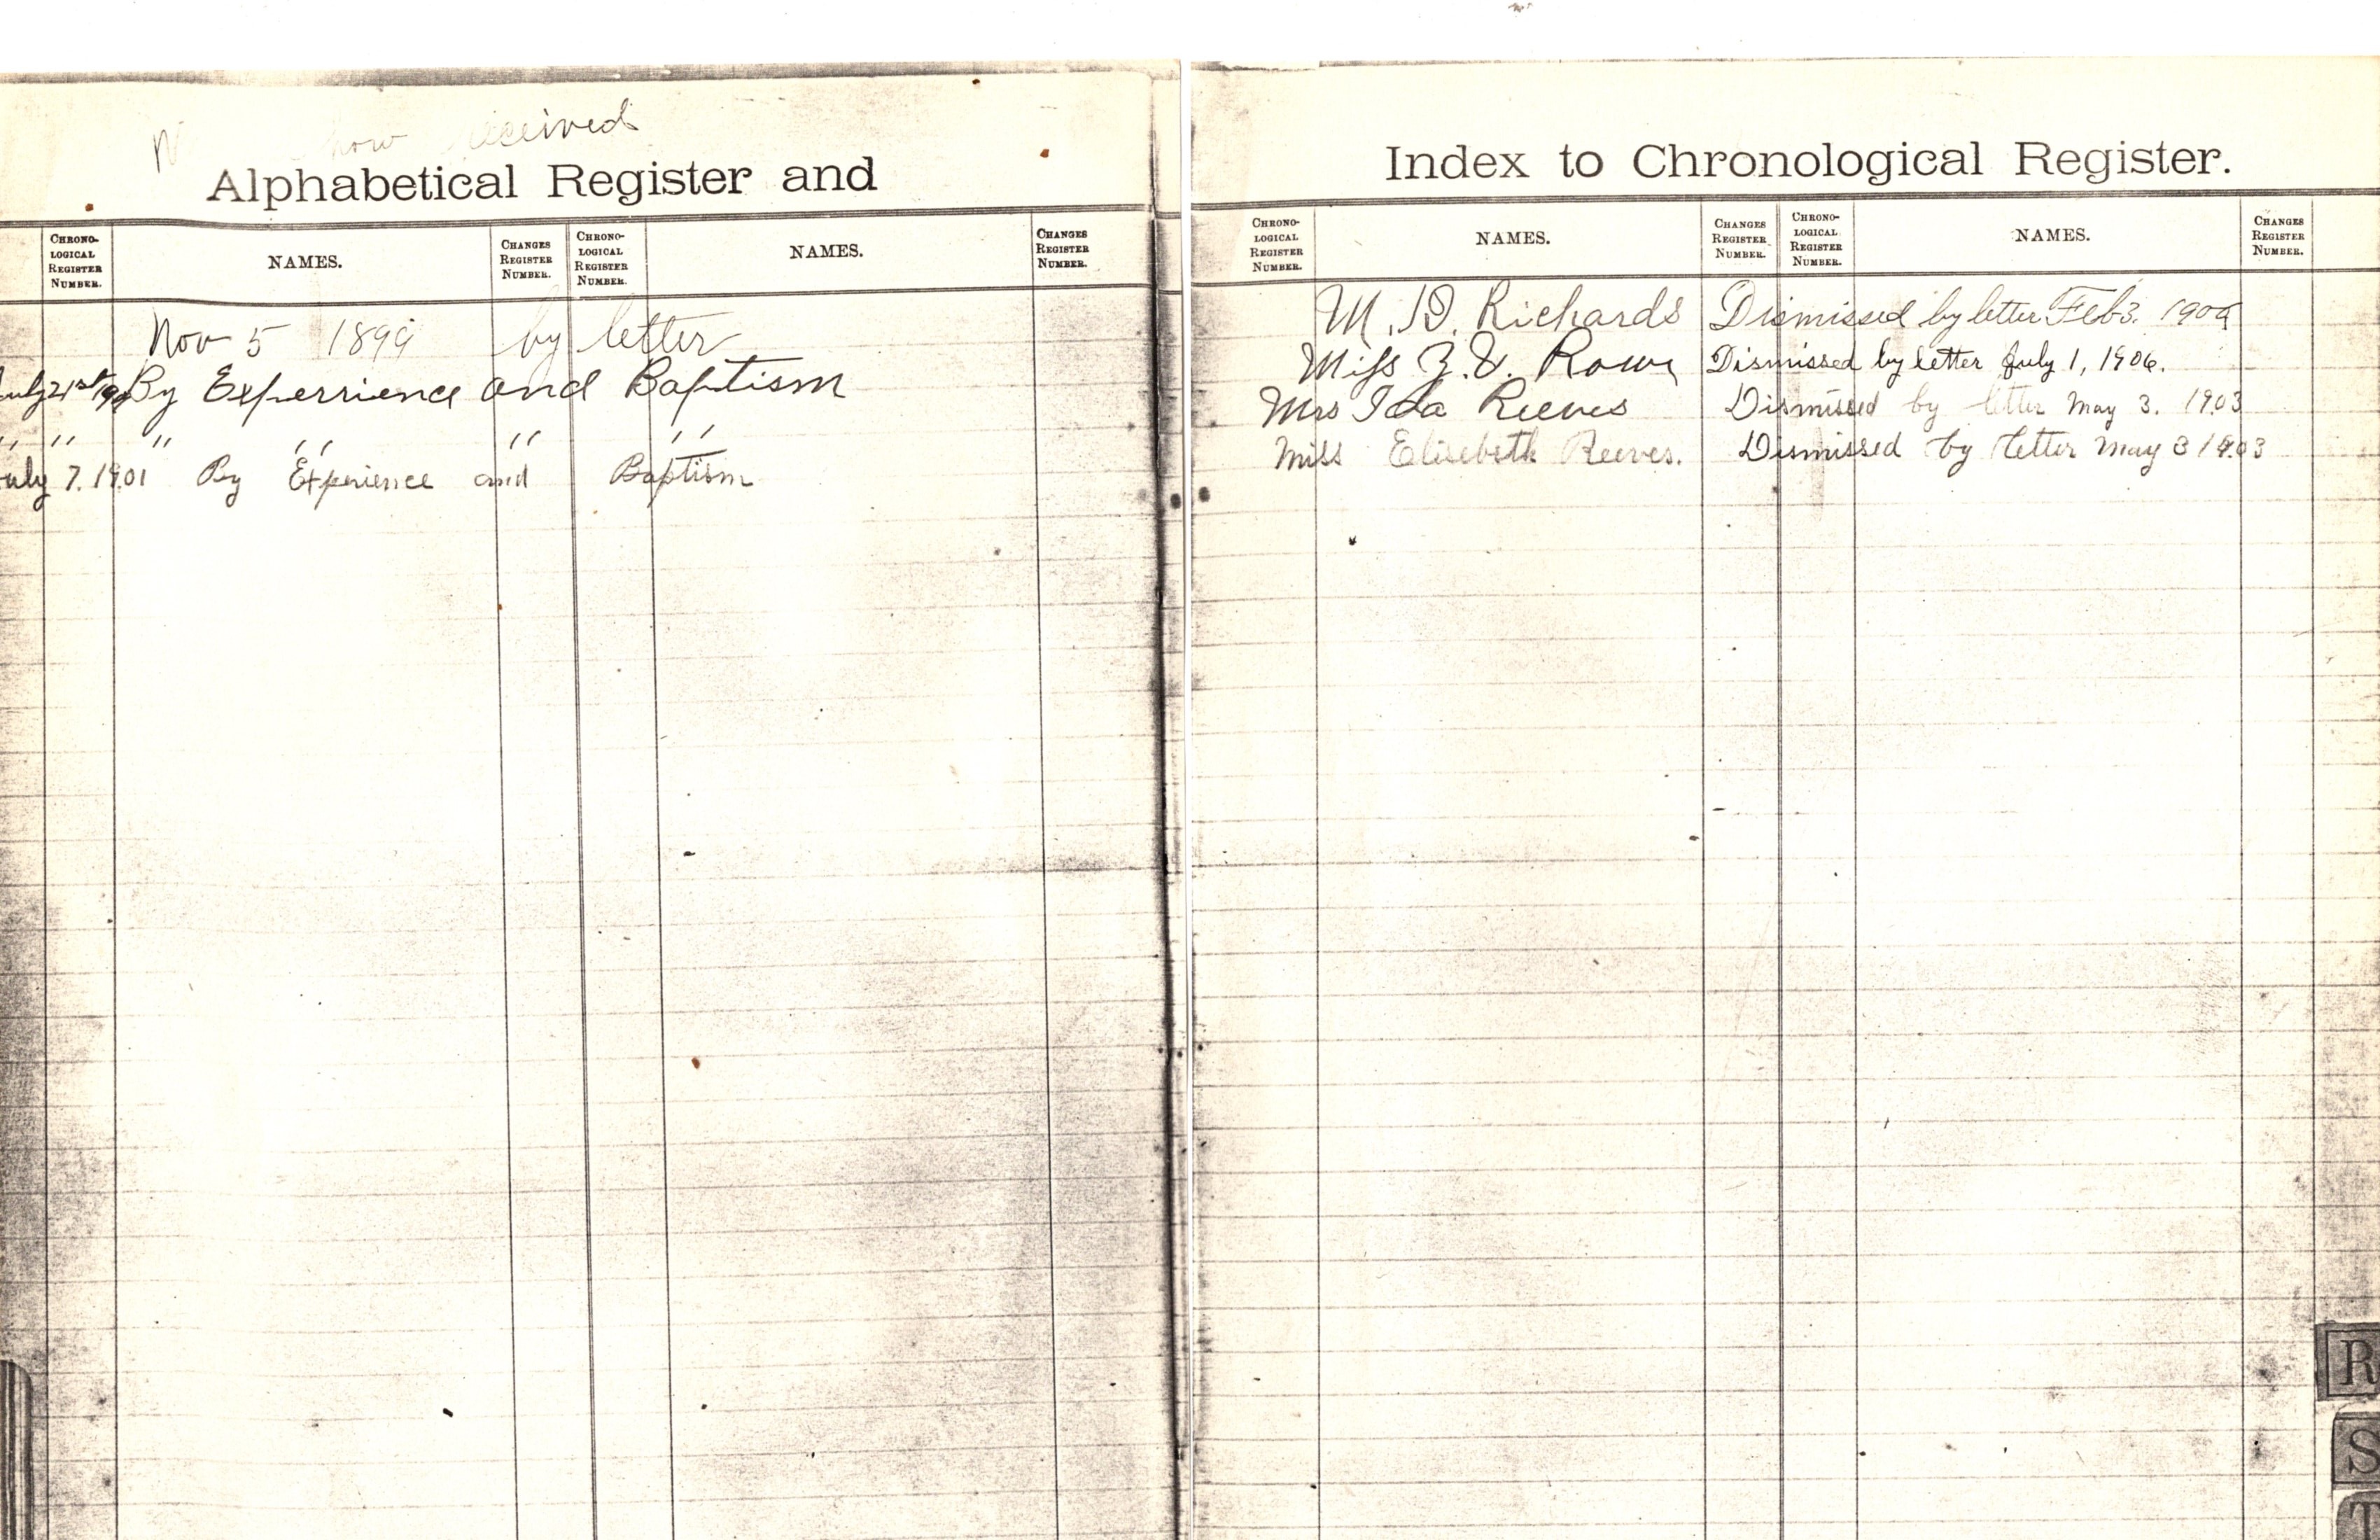 how received
Alphabetical Register and
CHRONO-
LOGICAL
REGISTER
NUMBER.
NAMES.
CHANGES
REGISTER
NUMBER.
CHRONO-
LOGICAL
REGISTER
NUMBER.
NAMES.
CHANGES
REGISTER
NUMBER.
Nov 5 1899 by letter
July 21st By Experrience and Baptism
" " " " " "
July 7. 1901 By Experience and Baptism
Index to Chronological Register.
CHRONO-
LOGICAL
REGISTER
NUMBER.
NAMES.
CHANGES
REGISTER
NUMBER.
CHRONO-
LOGICAL
REGISTER
NUMBER.
NAMES.
CHANGES
REGISTER
NUMBER.
M. D. Richards Dismissed by letter Feb 3. 1909
Miss Z. V. Rowe Dismissed by letter July 1, 1906.
Mrs Ida Reeves Dismissed by letter May 3. 1903
Miss Elisebeth Reeves. Dismissed by letter May 3 1903
R
S
T